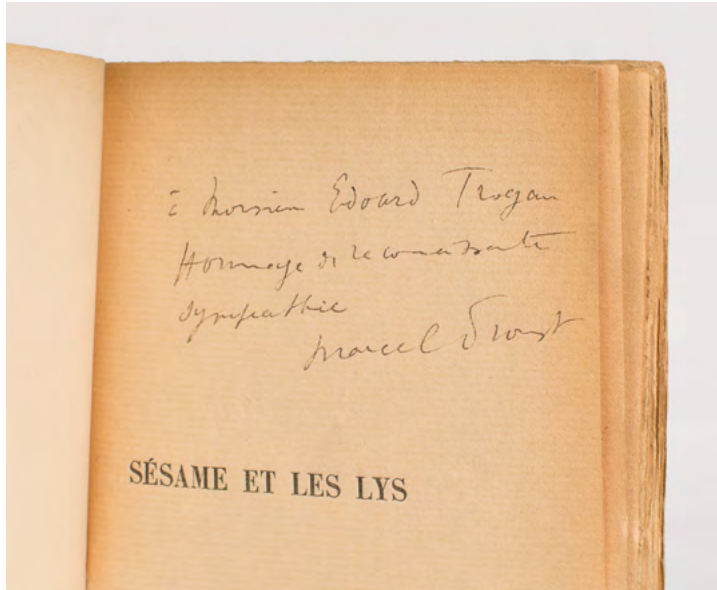 à Monsieur Edouard Trogan
Hommage de reconnaissante
sympathie
Marcel Proust
SÉSAME ET LES LYS